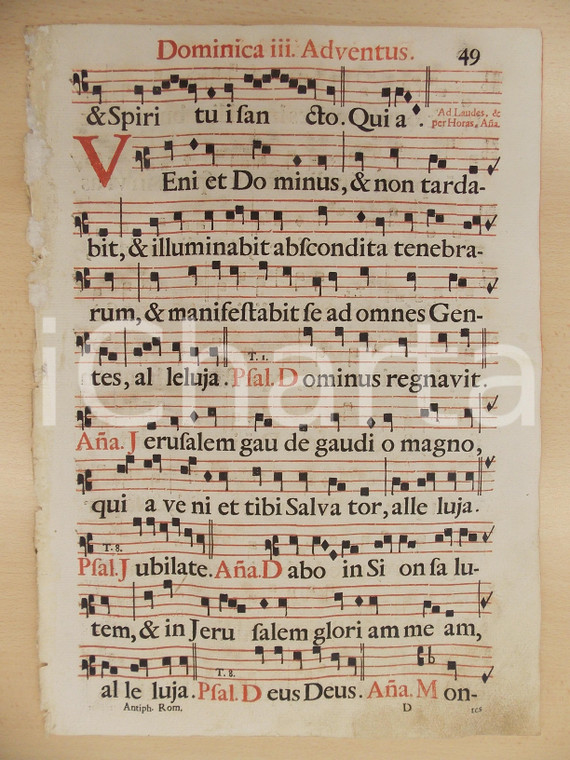 Dominica iii. Adventus. 49
& Spiri tu i ſan cto. Qui a . Ad Laudes, &
per Horas, Aña.
VEni et Do minus, & non tarda-
bit, & illuminabit abſcondita tenebra-
rum, & manifeſtabit ſe ad omnes Gen-
T. 1.
tes, al leluja. Pſal. D ominus regnavit.
Aña. J eruſalem gau de gaudi o magno,
qui a ve ni et tibi Salva tor, alle luja.
T. 8.
Pſal. J ubilate. Aña. D abo in Si on ſa lu-
tem, & in Jeru ſalem glori am me am,
T. 8.
al le luja. Pſal. D eus Deus. Aña. M on-
Antiph. Rom. D tes
iCharta